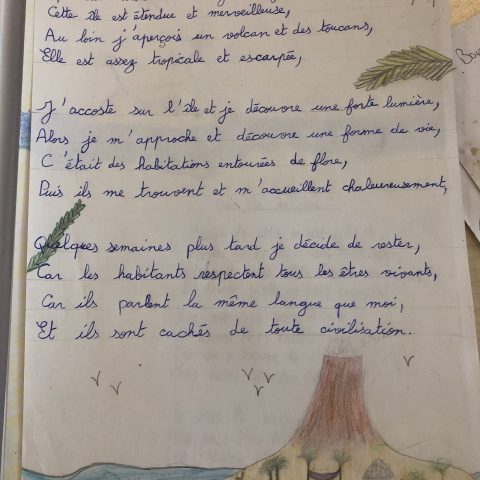 Cette île est étendue et merveilleuse,
Au loin j'aperçois un volcan et des toucans,
Elle est assez tropicale et escarpée,
J'accoste sur l'île et je découvre une forte lumière,
Alors je m'approche et découvre une forme de vie,
C'était des habitations entourées de flore,
Puis ils me trouvent et m'accueillent chaleureusement,
Quelques semaines plus tard je décide de rester,
Car les habitants respectent tous les êtres vivants,
Car ils parlent la même langue que moi,
Et ils sont cachés de toute civilisation.